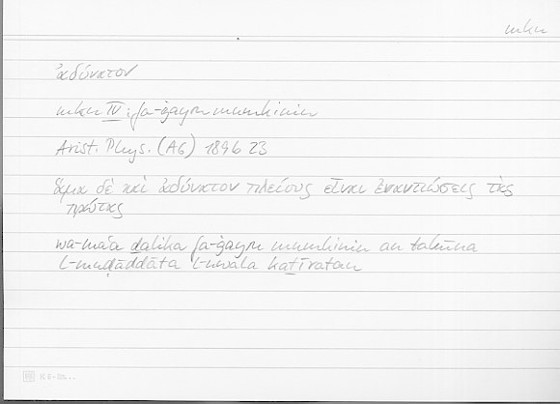 mkn
ἀδύνατον
mkn IV; fa-ġayru mumkinin
Arist. Phys. (A6) 189b 23
ἅμα δὲ καὶ ἀδύνατον πλείους εἶναι ἐναντιώσεις τὰς
πρώτας
wa-maʿa ḏālika fa-ġayru mumkinin an takūna
l-muḍāddāta l-uwala kaṯīratan